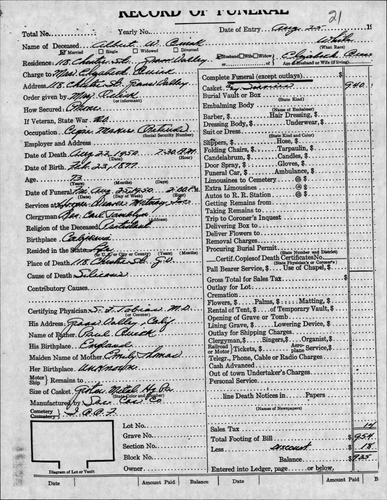 RECORD OF FUNERAL
21
Total No. Yearly No. Date of Entry Aug. 22 19
Name of Deceased Albert W. White
(What Race)
Married Single Widowed Divorced Husband Wife Widow of Elizabeth
Residence: 118 Chester St. Grass Valley
(If Wife, Husband or Widow of Living)
Charge to Mrs. Elizabeth
Address 118 Chester St. Grass Valley
Order given by
(or Informant)
How Secured Phone
If Veteran, State War no
Occupation (Retired)
Employer and Address
Date of Death Aug 22, 1950 7:30 P.M.
Date of Birth Feb. 23, 1877
Age 73
(Years) (Months) (Days)
Date of Funeral Aug 25, 1950 2:00 P.M.
Services at
Clergyman Rev. Carl
Religion of the Deceased Protestant
Birthplace California
Resided in the State Life
(U. S. A. or City or County) (Years) (Months)
Place of Death 118 Chester St. G.V.
Cause of Death Silicosis
Contributory Causes
Certifying Physician S. F. Tobias M.D.
His Address Grass Valley, Calif
Name of Father
His Birthplace England
Maiden Name of Mother Emily Thomas
Her Birthplace Unknown
Motor Ship Remains to
Size of Casket Metal
(State Color and Number)
Manufactured by
Cemetery
Crematory
Lot No.
Grave No.
Section No.
Block No.
Owner
Diagram of Lot or Vault
Complete Funeral (except outlays) $
Casket Services 940.
Burial Vault or Box
(State Kind)
Embalming Body
(Name of Embalmer)
Barber, $ Hair Dressing, $
Dressing Body, $ Underwear, $
Suit or Dress
(State Kind and Color)
Slippers, $ Hose, $
Folding Chairs, $ Tarpaulin, $
Candelabrum, $ Candles, $
Door Spray, $ Gloves, $
Funeral Car, $ Ambulance, $
Limousines to Cemetery @ $
Extra Limousines @ $
Autos to R. R. Station @ $
Getting Remains from
Taking Remains to
Trip to Coroner's Inquest
Delivering Box to
Deliver Flowers to
Removal Charges
Procuring Burial Permit
(State Number and District)
Certif. Copies of Death Certificates No.
(State Physician's or Coroner's)
Pall Bearer Service, $ Use of Chapel, $
Gross Total for Sales Tax $
Outlay for Lot
Cremation
Flowers, $ Palms, $ Matting, $
Rental of Tent, $ of Temporary Vault, $
Opening of Grave or Tomb
Lining Grave, $ Lowering Device, $
Outlay for Shipping Charges
Clergyman, $ Singers, $ Organist, $
Railroad Motor Tickets, $ Aero-plane Service $
Telegr., Phone, Cable or Radio Charges
Cash Advanced
Out of town Undertaker's Charges
Personal Service
line Death Notices in Papers
(Names of Newspapers)
Sales Tax 14
Total Footing of Bill $ 954.
Less discount 18
Balance $ 935.
Entered into Ledger, page or below.
Date Amount Paid Balance Date Amount Paid Balance